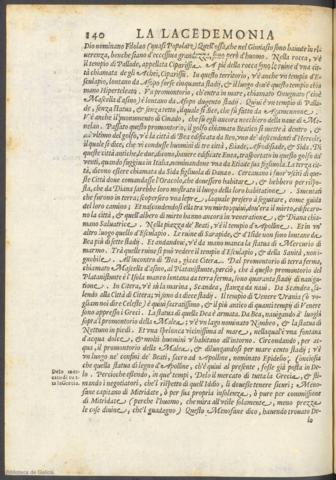 140 LA LACEDEMONIA
Dio nominano Filolao (quasi Popolare) Quell'ossa, che nel Ginnasio sono hauute in ri
uerenza, benche siano d'eccessiua grandezza, sono però d'huomo. Nella rocca, v'è
il tempio di Pallade, appellata Ciparissia. A piè della rocca sono le ruine d'vna cit
tà chiamata degli Achei, Ciparissi. In questo territorio, v'è anche vn tempio d'Es
culapio, lontano da Asopo forse cinquanta stadij, & il luogo dou'è questo tempio chia
mano Hiperteleato. Vn promontorio, ch'entra in mare, chiamato
Mascella d'asino) è lontano da Asopo dugento stadij. Quiui è vn tempio di Palla
de, senza statua, & senza tetto, il quale si dice, che fù fatto da Agamennone.
V'è anche il monumento di Cinado, che fù egli ancora nocchiero della naue di Me
nelao. Passato questo promontorio, il golfo chiamato Beatico si mette à dentro, &
su'l vltimo del golfo, v'è la città di Bea edificata da Beo, vno de' discendenti d'Hercole,
il quale si dice, che vi condusse huomini di tre città, Etiade, Afrodisiade, & Sida. Di
queste città antiche, le due, danno, hauere edificate Enea, trasportato in questo golfo da'
venti, quando fuggiua in Italia, nominandone vna da Etiade sua figliuola. La terza cit
tà, dicono essere chiamata da Side figliuola di Danao. Cercauano i fuor'vsciti di que
ste Città doue comandasse l'Oracolo, che douessero habitare, & hebbero per rispo
sta, che da Diana sarebbe loro mostrato il luogo della loro habitatione. Smontati
che furono in terra; scopersero vna lepre, laquale presero à seguitare, come guida
del loro camino; Et nascondendosi ella tra vn mirto quiui, doue era il mirto, edificaro
no la città, & quell'albero di mirto hanno ancora in veneratione, & Diana chia
mano Saluatrice. Nella piazza de' Beati, v'è il tempio d'Apolline. Et in vn'
altro luogo quello d'Esculapio. Le ruine di Serapide, & d'Iside non sono lontane da
Bea più di sette stadij. Et andandoui, v'è da man manca la statua di Mercurio di
marmo. Trà quelle ruine si può vedere il tempio d'Esculapio, & della Sanità,
All'incontro di Bea, giace Citera. Dal promontorio di terra ferma,
chiamato Mascella d'asino, al Platanistunte, perciò, che à questo promontorio del
Platanistunte l'Isola manco lontana da terra ferma, sono quaranta stadij di nauiga
tione. In Citera, v'è in la marina, Scandea, stanza da naui. Da Scandea, sa
lendo alla Città di Citera, vi sono da dieci stadij. Il tempio di Venere Vrania (ò vo
gliam noi dire Celeste) è quiui sacratissimo, & il più antico di quanti tempi di Venere
sono appresso i Greci. La statua di quella Dea è armata. Da Bea, nauigando à luoghi
sopra'l promontorio della Malea; v'è vn lago nominato Nimbeo, & la statua di
Nettuno in piedi. Et vna spelonca vicinissima al mare, nella quale è vna fontana
d'acqua dolce, & molti huomini v'habitano all'intorno. Circondando, per ac
qua, il promontorio della Malea, & dilungandosi per mare cento stadij; v'è
vn luogo ne' confini de' Beati, sacro ad Apolline, nominato Epidelio. Conciosia
che quella statua di legno d'Apolline, ch'è quiui al presente, fosse già posta in De
Delo mer-
cato di tut-
ta la Grecia.
lo. Percioche essendo, in que' tempi, Delo il mercato di tutta la Grecia, & sti-
mando i negotiatori, che'l rispetto di quel Iddio, li douesse tenere sicuri; Meno-
fane capitano di Mitridate, ò per sua propria insolenza, ò pure per commissione
di Mitridate (perche l'huomo, che mira all'vtile solamente, meno prezza
le cose diuine, che'l guadagno) Questo Menofane dico, hauendo trouato De-
lo
Biblioteca de Galicia